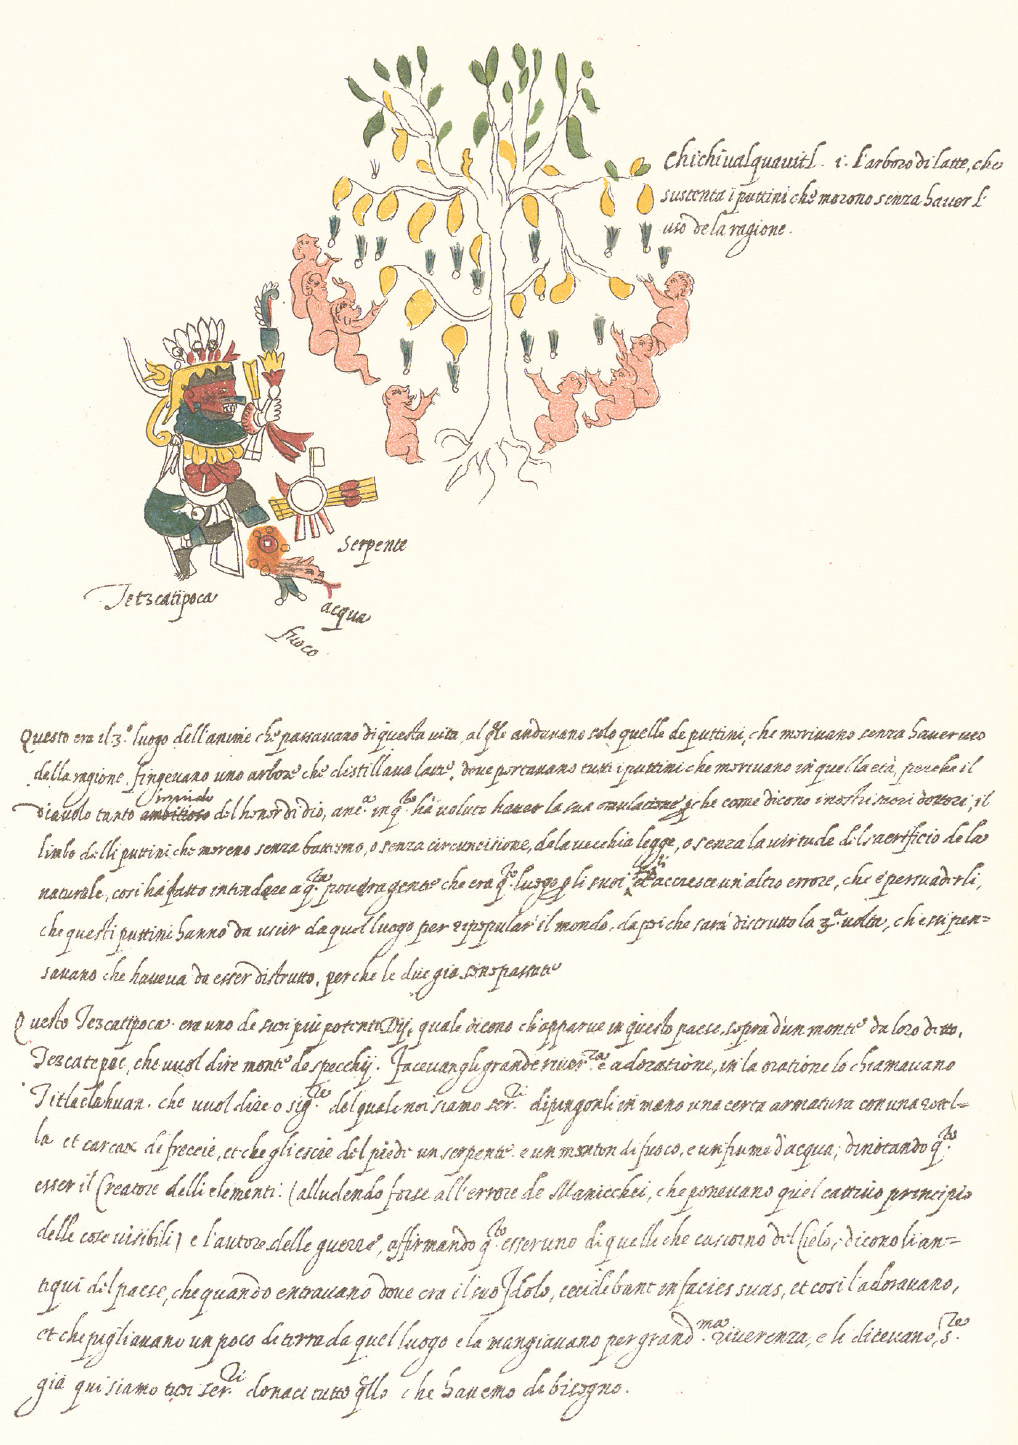 Chichiualquauitl. i. l'arboro di latte, che
sustenta i puttini che morono senza hauer l'
uso de la ragione.
serpente
Tetzcatipoca
acqua
fuoco
Questo era il 3.º luogo dell'anime che passauano di questa uita, al q̃le andauano solo quelle de puttini, che moriuano senza hauer uso
della ragione. fingeuano uno arbore che distillaua latte, doue portauano tutti i puttini che moriuano in quella età, perche il
inuido
Diauolo tanto ambitioso del honor di dio, anc.ª in q.to ha uoluto hauer la sua emulatione p̃che come dicono i nostri sacri dottori, il
limbo delli puttini che moreno senza battismo, o senza circuncisione, dela vecchia legge, o senza la uirtude del sacrificio de la
naturale, cosi ha fatto intindere a q.ta pouera gente che era q.to luogo p̃ li suoi accresce un'altro errore, che è persuaderli,
che questi puttini hanno da uscir da quel luogo per ripopular il mondo, da poi che sarà distrutto la 3.ª uolta, che si pen=
sauano che haueua da esser distrutto, perche le due gia sono passate
Questo Tezcatipoca era uno de suoi piu potenti Dij, quale dicono ch'apparue in questo paese sopra d'un monte da loro ditto,
Tezcatepec, che uuol dire monte de specchij. faceuangli grande riuer.za e adoratione, in la oratione lo chiamauano
Titlaclahuan. che uuol dire o sig.re del quale noi siamo ser.ti dipangonli in mano una certa armatura con una rotel=
la et carcax di freccie, et che gli escie del piede un serpente. e un monton di fuoco, e un fiume d'acqua; dinotando q.to
esser il Creatore delli elementi. (alludendo forse all'errore de Manicchei, che poneuano quel cattiuo principio
delle cose uisibili) e l'autore delle guerre, affirmando q.to esser uno di quelle che cascorno del Cielo, dicono li an=
tiqui del paese, che quando entrauano doue era il suo Idolo, cecidebant in facies suas, et cosi l'adorauano,
et che pigliauano un poco de terra da quel luogo e la mangiauano per grand.ma riuerenza, e li diceuano, s.re
gia qui siamo tuoi ser.ti donaci tutto q̃llo che hauemo di bisogno.